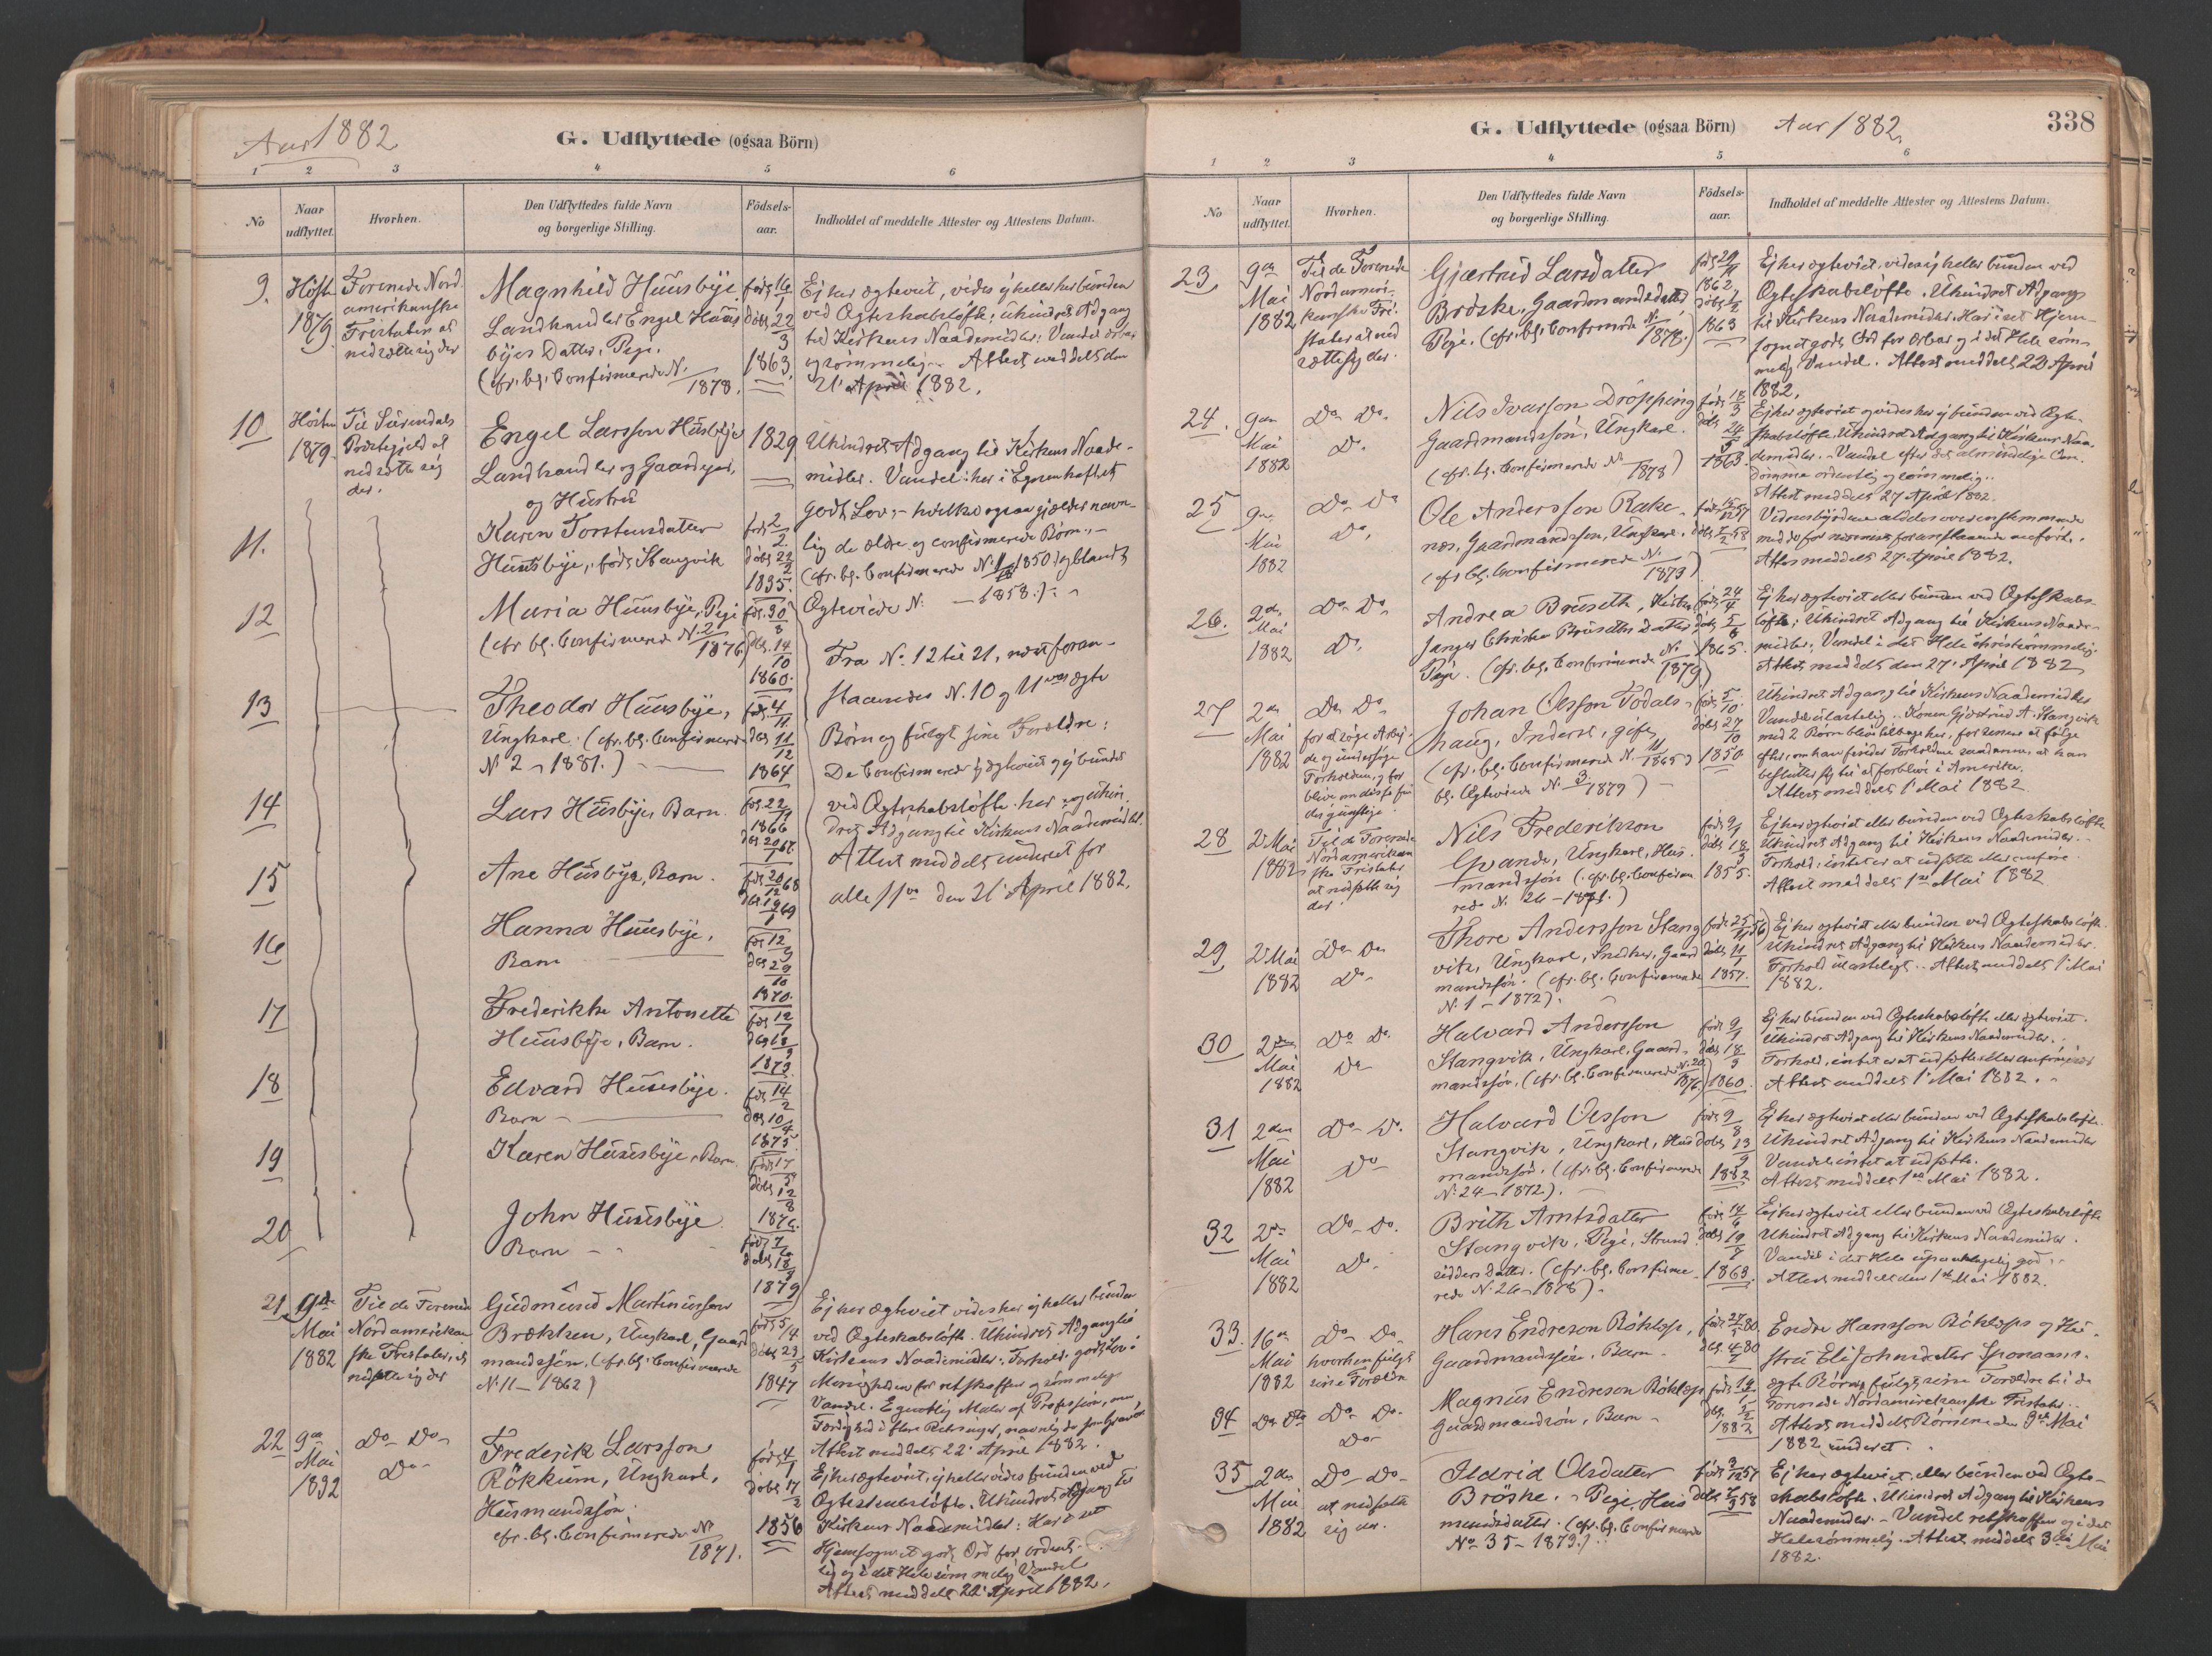 Aar 1882
G. Udflyttede (ogsaa Börn)
1 2 3 4 5 6
No
Naar udflyttet.
Hvorhen.
Den Udflyttedes fulde Navn
og borgerlige Stilling.
Födsels-
aar.
Indholdet af meddelte Attester og Attestens Datum.
9.
Høst
1879
Forenede Nord
amerikanske
Fristater at
nedsætte sig der
Magnhild Huusbye.
Landhandler Engel Huus
byes Datter, Pige.
(cfr. bl. Confirmerede N.
1878.
1863.
Ej her ægteviet, vides ej heller her bunden
ved Ægteskabsløfte; uhindret Adgang
til Kirkens Naademidler; Vandel
og sømmelig. Attest meddelt den
21 April 1882.
10
Høsten
1879.
Til Surendals
Præstegjeld at
nedsætte sig
der.
Engel Larsson Husbye
Landhandler og Gaardejer,
og Hustru
1829
Uhindret Adgang til Kirkens Naade-
midler. Vandel: her i Egnen haftet
godt Lov; hvilket ogsaa gjælder navn-
lig de ældre og confirmerede Børn.
11.
Karen Torstensdatter
Huusbye, født Stangvik
født 2/2
døbt 22/2
1835.
(cfr. bl. Confirmerede N. 1850 og blandt
Ægteviede N. — 1858.)
12
Maria Huusbye, Pige
(cfr. bl. Confirmerede N. 2
1876)
født 30/8
døbt 14/10
1860.
Fra No. 12 til 21, næstforan-
staaendes N. 10 og 11 ægte
Børn og fulgt sine Forældre:
De Confirmerede ej ægteviet og ej bundet
ved Ægteskabsløfte her og uhin
dret Adgang til Kirkens Naademidler.
Attest meddelt underet for
alle 11 den 21 April 1882.
13
Theodor Huusbye,
Ungkarl. (cfr. bl. Confirmerede
N 2 – 1881.)
født 4/11
døbt 11/12
1864
14
Lars Husbye, Barn
født 22/11
1866
15
Ane Husbye, Barn.
født 20/12 68
16
Hanna Huusbye,
Barn
født 12/9
døbt 29/10
1870.
17
Frederikke Antonette
Huusbye, Barn.
1873
18
Edvard Huusbye.
Barn
født 14/2
døbt 10/4
1875
19
Karen Huusbye, Barn.
født 17/5
døbt 12/8
1876.
20
John Huusbye
Barn
1879
21
9de
Mai
1882
Til de Forenede
Nordamerikan
ske Fristater, at
nedsætte sig der
Gudmund Martinusson
Brækken, Ungkarl, Gaard
mandssøn. (cfr. bl. Confirmerede
N. 11 – 1862)
født 5/4
døbt 23/5
1847
Ej her ægteviet vides her ej heller bunden
ved Ægteskabsløfte. Uhindret Adgang til
Kirkens Naademidler. Forhold: godt Lov i
Menigheden for retskaffen og sømmelig
Vandel.
Attest meddelt 22 April 1882.
22
9de
Mai
1892
Do Do
Do
Frederik Larsson
Rökkum, Ungkarl,
Husmandssøn.
cfr. bl. Confirmerede No
1871.
født 4/1
døbt 17/2
1856
Ej her ægteviet, ej heller vides bunden ved
Ægteskabsløfte. Uhindret Adgang til
Kirkens Naademidler: Har i sit
Hjemsogn et godt Ord for ordent-
lig og i det Hele sømmelig Vandel
Attest meddelt 22 April 1882.
G. Udflyttede (ogsaa Börn)
Aar 1882.
338
1 2 3 4 5 6
No
Naar udflyttet.
Hvorhen.
Den Udflyttedes fulde Navn
og borgerlige Stilling.
Födsels-
aar.
Indholdet af meddelte Attester og Attestens Datum.
23.
9de
Mai
1882
Til de Forenede
Nordameri-
kanske Fri-
stater at ned
sætte sig der.
Gjærtrud Larsdatter
Brøske, Gaardmandsdatter
Pige. (cfr. bl. Confirmerede No
1878.)
1862
1863
Ej her ægteviet, vides ej heller bunden ved
Ægteskabsløfte. Uhindret Adgang
til Kirkens Naademidler. Har i sit Hjem-
sogn et godt Ord for ærbar og i det Hele søm-
melig Vandel. Attest meddelt 22 April
1882.
24.
9de
Mai
1882
Do Do
Do
Nils Ivarsson Drøpping
Gaardmandssøn, Ungkarl.
(cfr. bl. Confirmerede No
1878)
født 18/3
døbt 24/5
1863.
Ej her ægteviet og vides her ej bunden ved Ægte-
skabsløfte. Uhindret Adgang til Kirkens Naa-
demidler. Vandel efter det almindelige Om-
dømme ordentlig og sømmelig.
Attest meddelt 27 April 1882.
25
9de
Mai
1882
Do Do
Do
Ole Andersson Rake-
nes, Gaardmandssøn, Ungkarl.
(cfr. bl. Confirmerede No.
1873)
Vidnesbyrdene alldeles overensstemmende
med de for næstforanstaaende anført.
Attest meddelt 27 April 1882.
26.
2den
Mai
1882
Do Do
Do
Andrea Bruseth, Kirke
sanger Christen Bruseths Datter
Pige. (cfr. bl. Confirmerede No
1879)
født 24/4
døbt 5/6
1865.
Ej her ægteviet eller bunden ved Ægteskabs-
løfte; Uhindret Adgang til Kirkens Naade-
midler, Vandel i det Hele christsømmelig.
Attest meddelt den 27 April 1882
27
2den
Mai
1882
Do Do
for at søge Arbej-
de og undersøge
Forholdene, og for
blive om disse fin
des gunstige
Johan Olsson Todals-
haug, Inderst, gift,
(cfr. bl. Confirmerede N. 11
1865 og
bl. Ægteviede N. 3
1879)
født 5/10
døbt 27/10
1850
Uhindret Adgang til Kirkens Naademidler
Vandel ulastelig. Konen Gjertrud A. Stangvik
med 2 Børn blir tilbage her, for senere at følge
efter, om han finder Forholdene saadanne, at han
beslutter sig til at forblive i Amerika.
Attest meddelt 1 Mai 1882
28
2den Mai
1882
Til de Forenede
Nordamerikan
ske Fristater
at nedsætte sig
der.
Nils Frederikson
Qvande, Ungkarl, Hus-
mandssøn (cfr. bl. Confirme
rede N. 26 – 1871.)
1855.
Ej her ægteviet eller bunden ved Ægteskabsløfte
Uhindret Adgang til Kirkens Naademidler.
Forhold, intet er at udsætte eller anføre.
Attest meddelt 1ste Mai 1882
29
2den Mai
1882
Do Do
Do
Thore Andersson Stang
vik, Ungkarl, Snedker, Gaard
mandssøn. (cfr. bl. Confirmerede
N. 1 – 1872).
1857.
Ej her ægteviet eller bunden ved Ægteskabsløfte.
Uhindret Adgang til Kirkens Naademidler.
Forhold ulasteligt. Attest meddelt 1 Mai
1882.
30
2den
Mai
1882
Do Do
Do
Halvard Andersson
Stangvik, Ungkarl, Gaard-
mandssøn, (cfr. bl. Confirmerede N. 20
1876)
1860.
Ej her bunden ved Ægteskabsløfte eller ægteviet.
Uhindret Adgang til Kirkens Naademidler.
Forhold, intet er at udsætte eller anføre
Attest meddelt 1 Mai 1882.
31
2den
Mai
1882
Do Do
Do
Halvard Olsson
Stangvik, Ungkarl, Hus
mandssøn. (cfr. bl. Confirmerede
N. 24 – 1872).
født 9/8
døbt 13/9
Ej her ægteviet eller bunden ved Ægteskabsløfte.
Uhindret Adgang til Kirkens Naademidler
Vandel, intet at udsætte.
Attest meddelt 1ste Mai 1882.
32
2den
Mai
1882
Do Do.
Do
Brith Arntsdatter
Stangvik, Pige, Strand
sidders Datter. (cfr. bl. Confirme-
rede N. 26 – 1878).
1863.
Ej her ægteviet eller bunden ved Ægteskabsløfte
Uhindret Adgang til Kirkens Naademidler.
Vandel i det Hele upaaklagelig god.
Attest meddelt den 1ste Mai 1882.
33.
16de
Mai
1882
Do Do
hvorhen fulgt
sine Forældre
Hans Endreson Böklep,
Gaardmandssøn, Barn
Endre Hansson Bökleps og Hu-
stru Eli Johnsdatter
ægte Børn, fulgt sine Forældre til de
Forenede Nordamerikanske Fristater.
Attest meddelt Børnene den 9de Mai
1882 underet.
34
Do Do
Do Do
Do
Magnus Endreson Böklep
Gaardmandssøn, Barn
1882
35
2den
Mai
1882
Do Do
at nedsætte
sig der.
Ildrid Olsdatter
Brøske. Pige, Hus
mandsdatter. (cfr. bl. Confirmerede
No 35 – 1873.)
Ej her ægteviet, eller bunden ved Ægte-
skabsløfte. Uhindret Adgang til Kirkens
Naademidler. – Vandel retskaffen og i det
Hele sømmelig. Attest meddelt 3die Mai
1882.